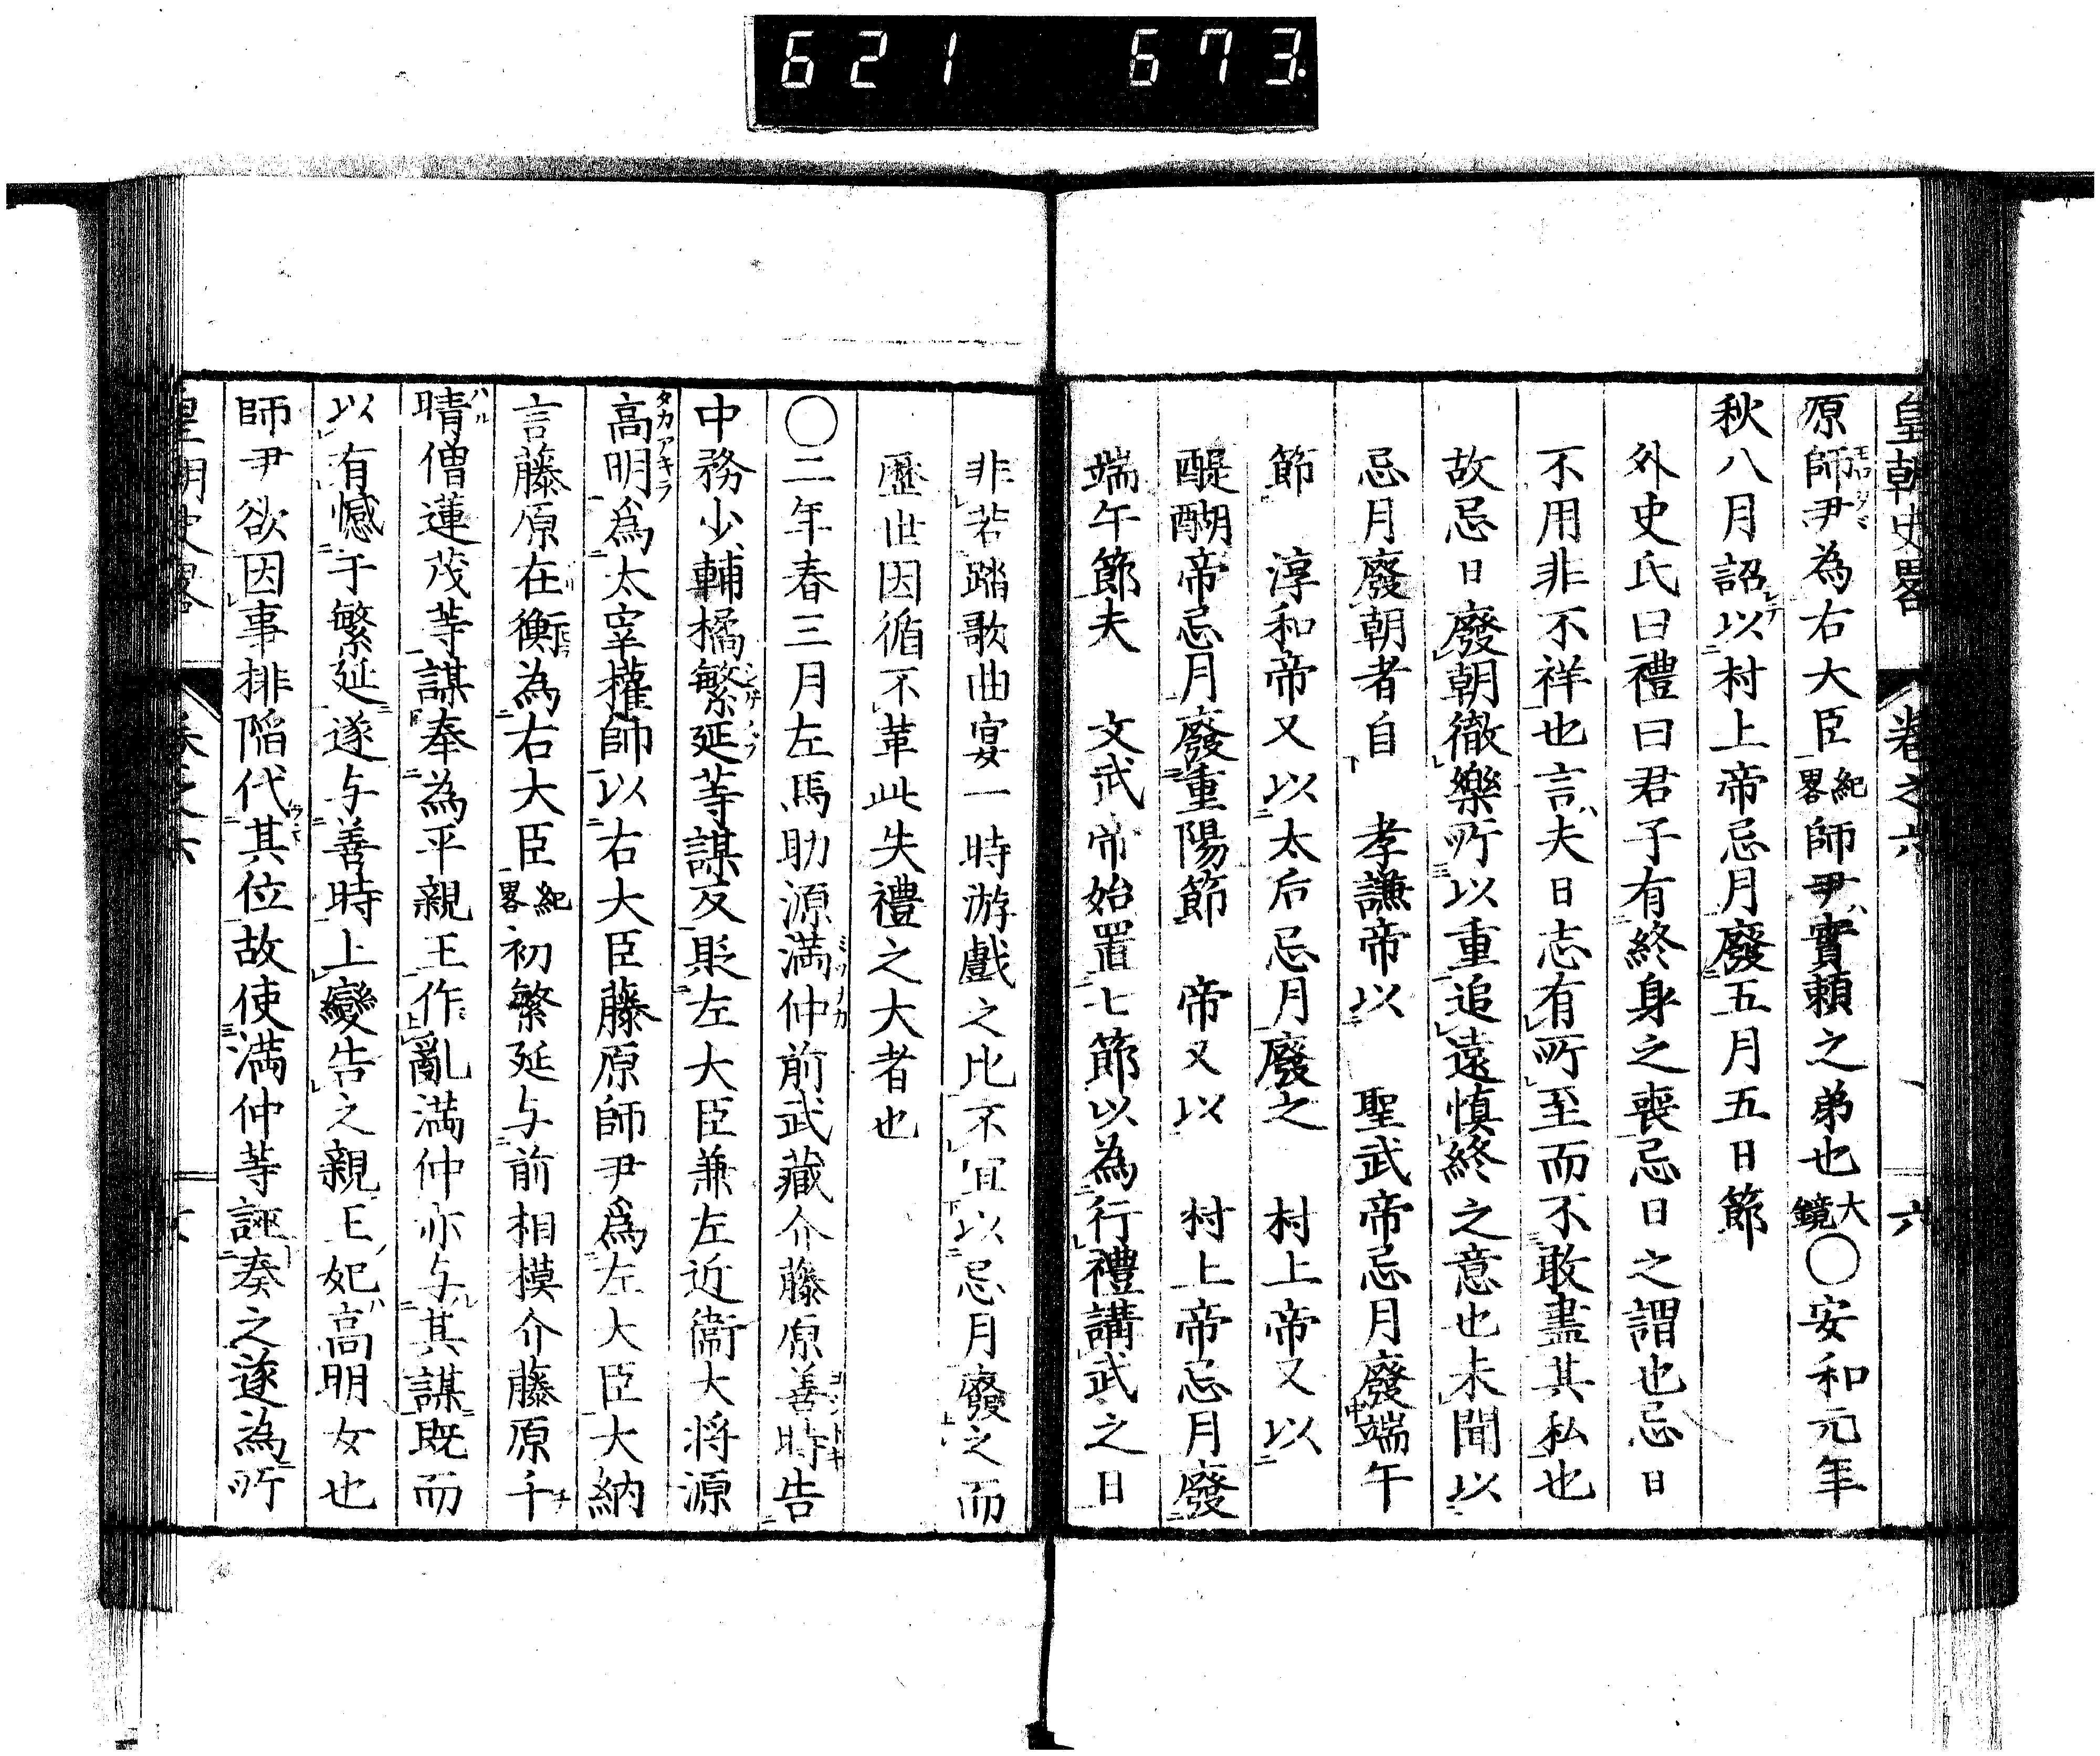 621 673.
皇朝史畧 卷之六 六
原師尹為右大臣紀畧師尹實頼之弟也大鏡〇安和元年
秋八月詔以村上帝忌月廢五月五日節
外史氏曰禮曰君子有終身之喪忌日之謂也忌日
不用非不祥也言夫日志有所至而不敢盡其私也
故忌日廢朝徹樂所以重追遠慎終之意也未聞以
忌月廢朝者自 孝謙帝以 聖武帝忌月廢端午
節 淳和帝又以太后忌月廢之 村上帝又以
醍醐帝忌月廢重陽節 帝又以 村上帝忌月廢
端午節夫 文武帝始置七節以為行禮講武之日
非若踏歌曲宴一時游戲之比不宜以忌月廢之而
歷世因循不革此失禮之大者也
〇二年春三月左馬助源満仲前武藏介藤原善時告
中務少輔橘繁延等謀反貶左大臣兼左近衞大将源
高明爲太宰權帥以右大臣藤原師尹爲左大臣大納
言藤原在衡為右大臣紀畧初繁延与前相模介藤原千
晴僧蓮茂等謀奉為平親王作亂満仲亦与其謀既而
以有憾于繁延遂与善時上變告之親王妃高明女也
師尹欲因事排陷代其位故使満仲等誣奏之遂為所
皇朝史畧 卷之六